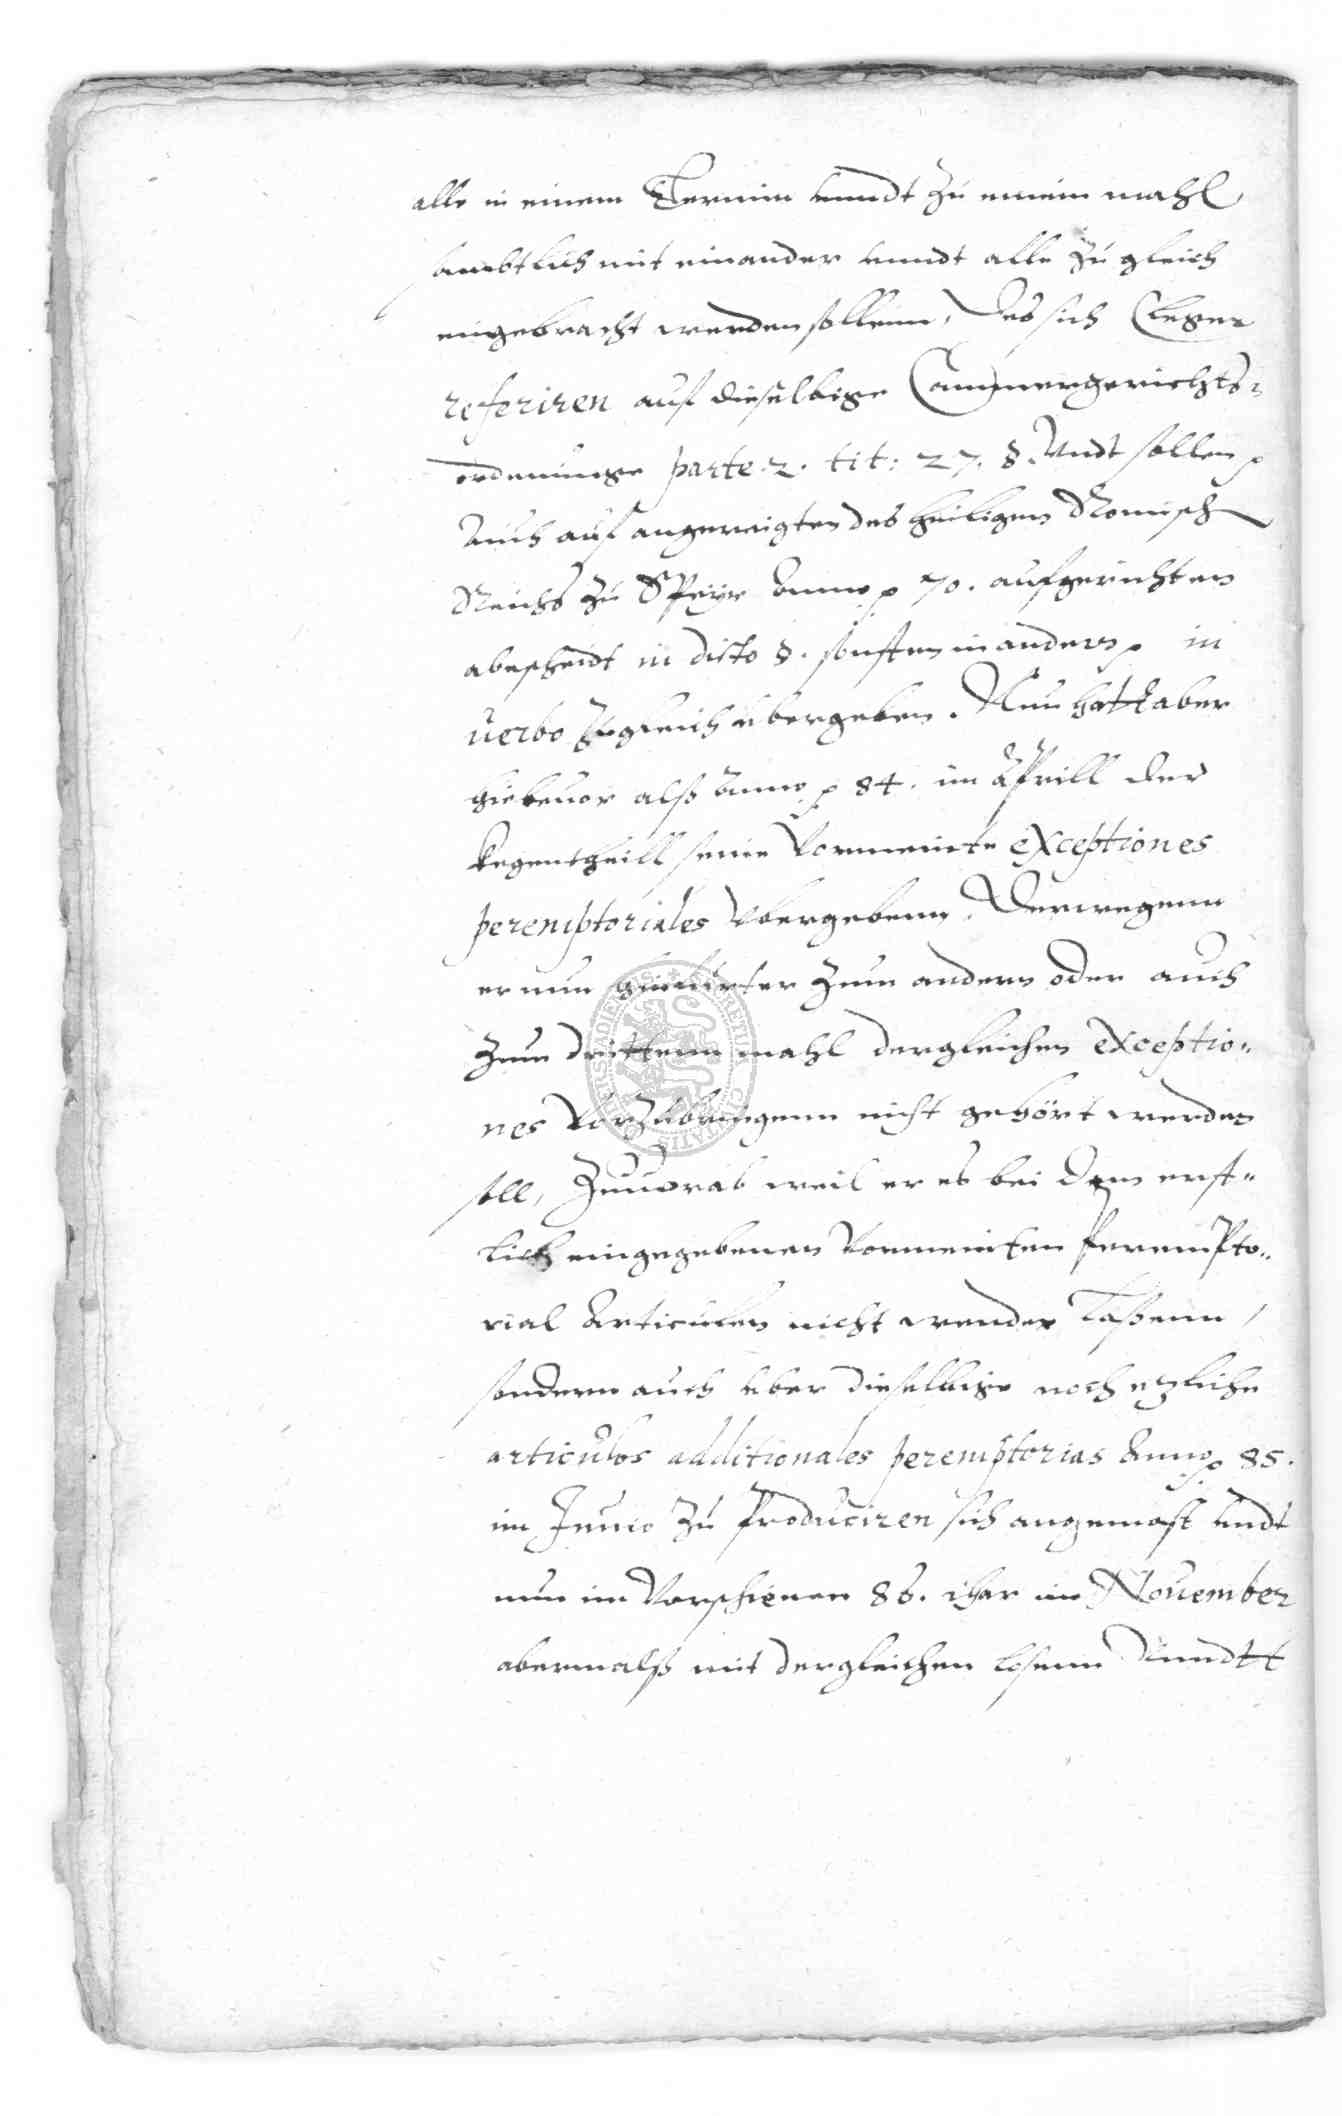 alle in einem Termin unndt zu einem mahl
sambtlich mit einander unndt alle zu gleich
eingebracht werden sollenn, Des sich Cleger
referiren auf dieselbige Cammergerichts-
ordenunge parte. 2. tit: 27. §. Undt sollen p
Auch auf angereigten des heiligen Romisch
Reichs zu Speyr Anno p 70. aufgerichten
abescheidt in dicto §. sonsten in anders p in
uerbo zugleich ubergeben. Nun hatt aber
hiebeuor alß Anno p 84. im Aprill der
kegentheill seine vormeinte exceptiones
peremptoriales vbergebenn, Derwegenn
er nun hinfurter zum andern oder auch
zum drittenn mahl dergleichen exceptio-
nes vorzubringenn nicht gehört werden
soll, Zuuorab weil er es bei den erst-
lich eingegebenen vormeinten Perempto-
rial Articulen nicht wenden laßenn,
sondern auch uber dieselbige noch etzliche
articulos additionales peremptorias Anno p 85.
im Junio zu Produciren sich angemast undt
nun im vorschienen 86. ihar im Nouember
abermalß mit dergleichen losenn Unndtt